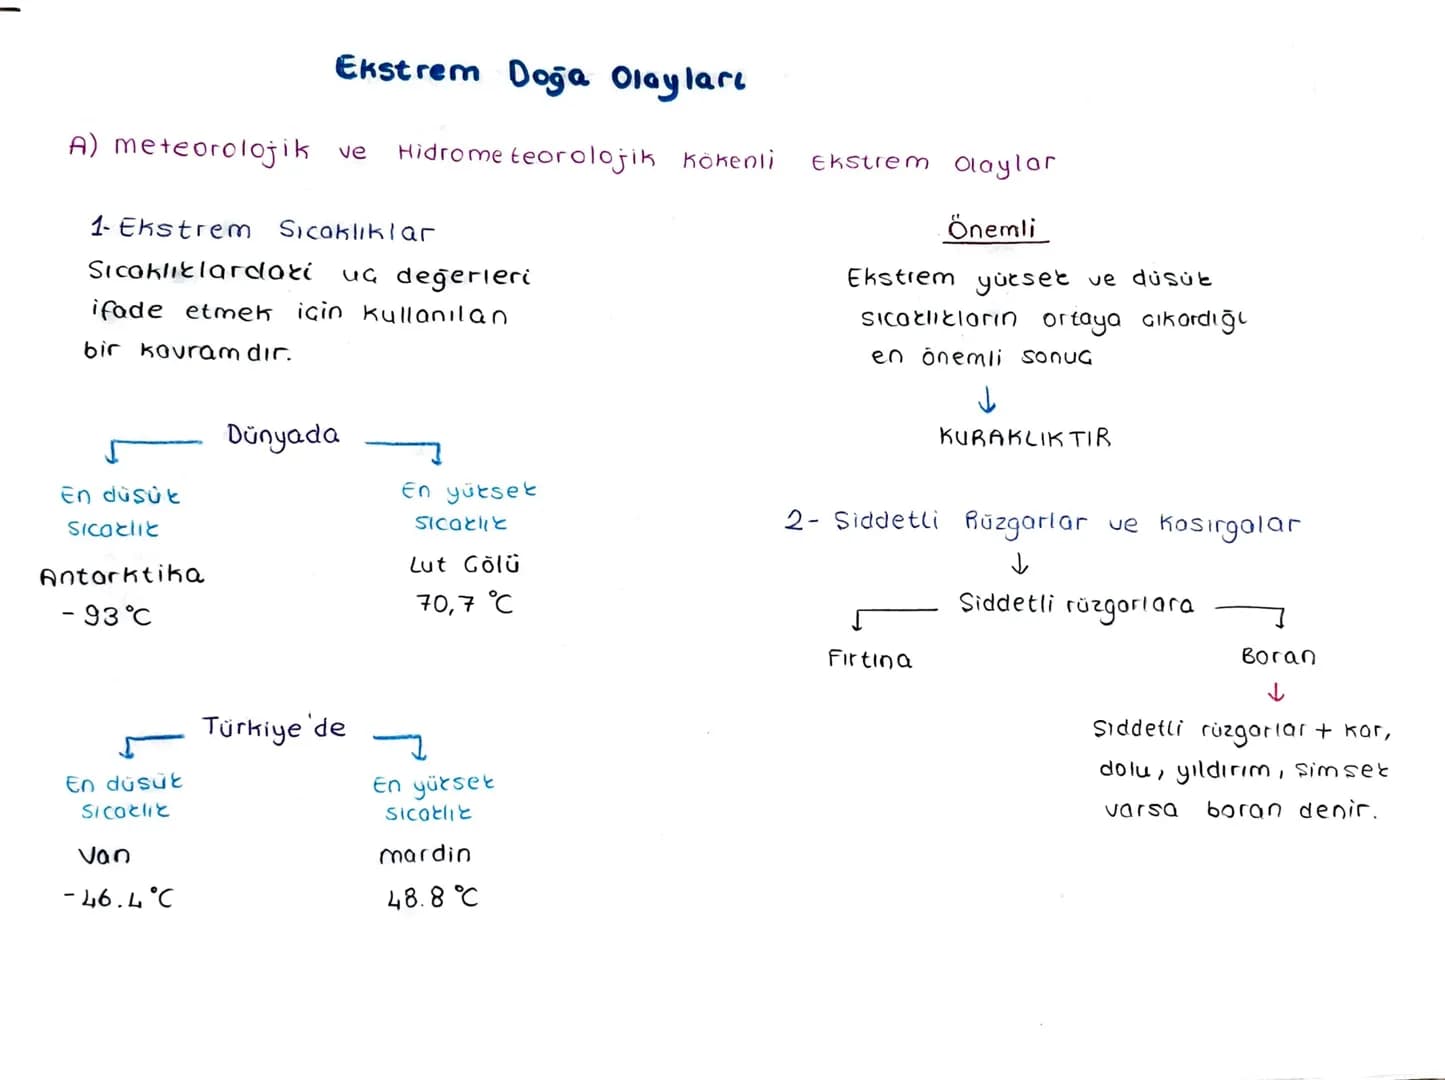 Ekstrem Doğa Olayları
A) meteorolojik ve Hidrometeorolojik Kökenli Ekstrem Olaylar
1- Ekstrem Sıcaklıklar
Sıcaklıklardaki uc değerleri
ifade etmek icin kullanılan
bir kavramdır.
Dünyada
En düsük
sıcaklık
Antarktika
- 93°C
En yüksek
sıcaklık
Lut Gölü
70,7 °C
Türkiye'de
En düsük
sıcaklık
Van
- 46.4°C
En yüksek
sıcaklık
mardin
48.8 °C
Önemli
Ekstrem yüksek ve düsük
sıcaklıkların ortaya cıkardığı
en önemli sonuc
↓
KURAKLIKTIR
2- Siddetli Rüzgarlar ve Kasırgalar
↓
Siddetli rüzgarlara
Fırtına
Boran
↓
Siddetli rüzgarlar + kar,
dolu, yıldırım, simsek
varsa boran denir.